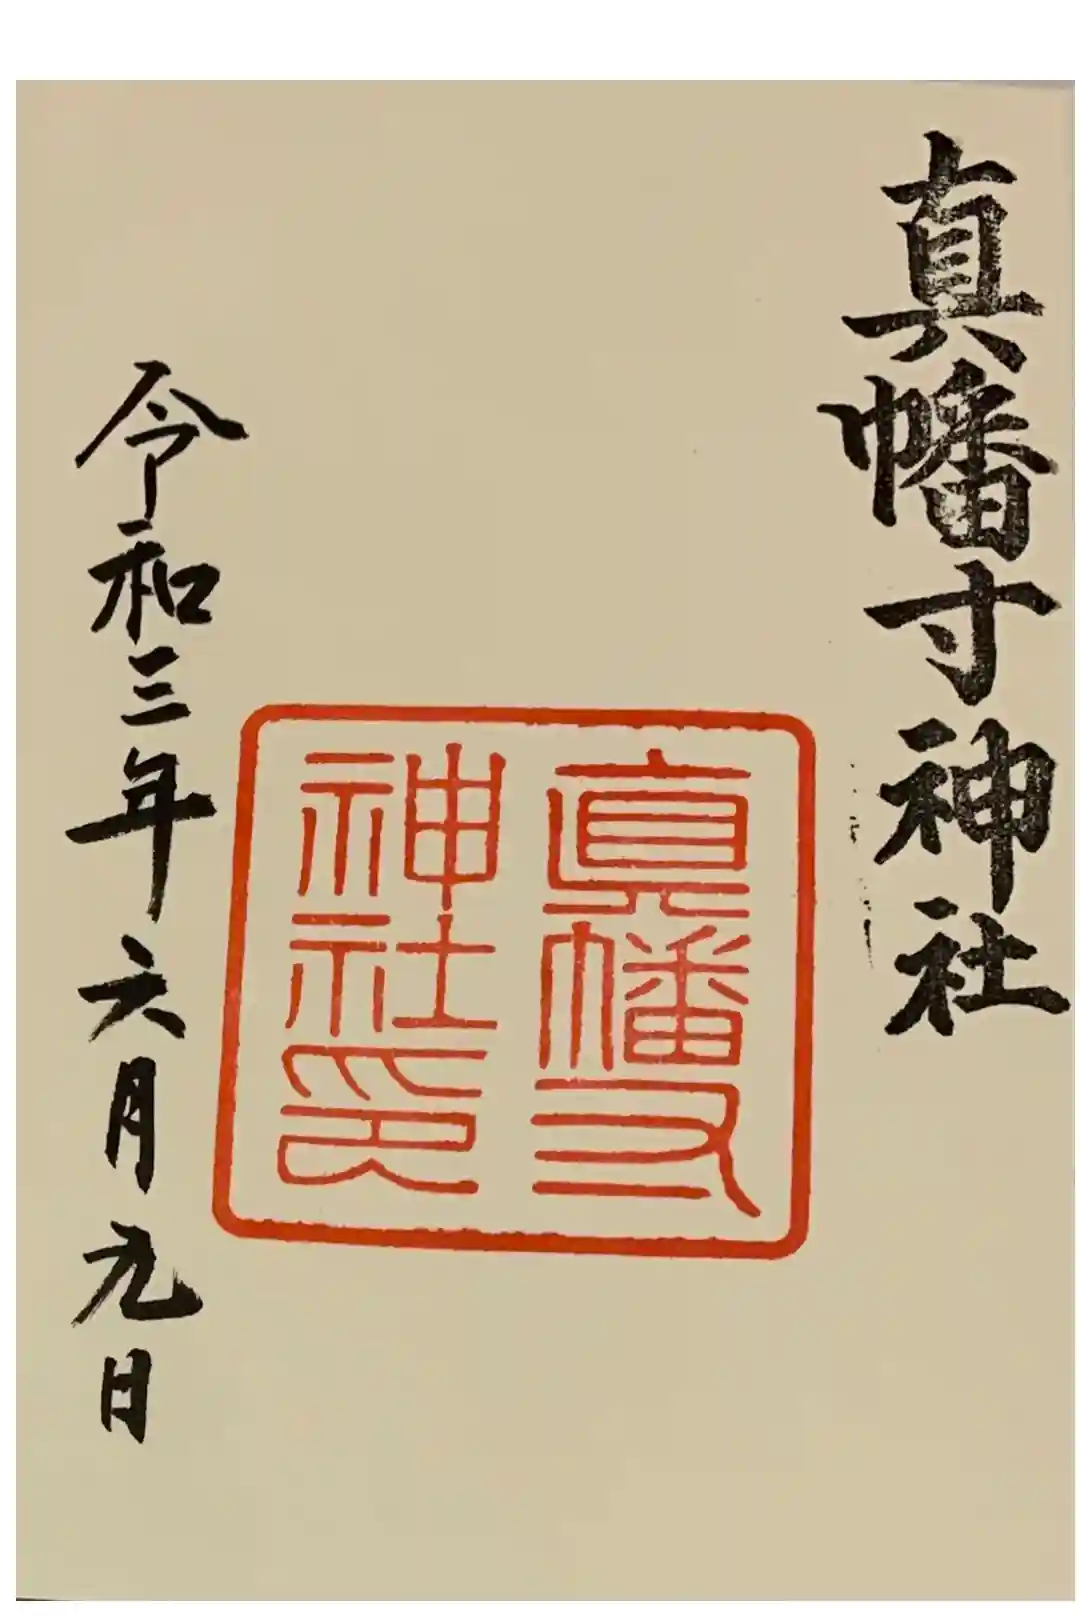 真幡寸神社
真幡寸
神社印
令和三年六月九日